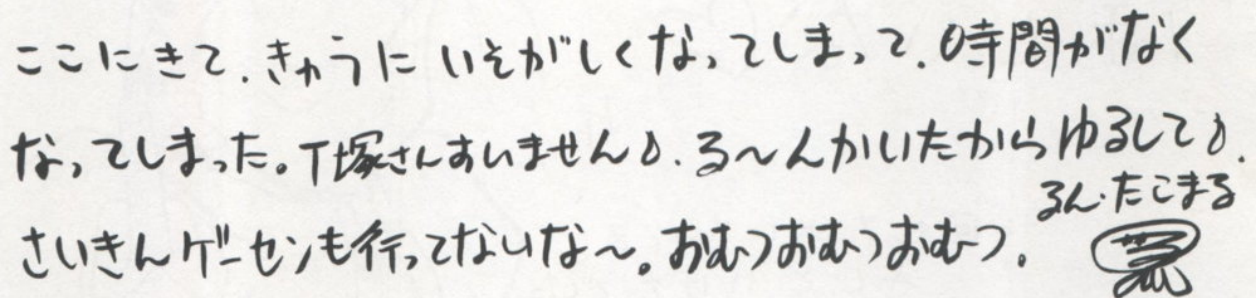 ここにきて、きゅうにいそがしくなってしまって、時間がなく
なってしまった。T塚さんすいません、る〜んかいたからゆるして
さいきんゲーセンも行ってないな〜。おむつおむつおむつ。
るん・たこまる